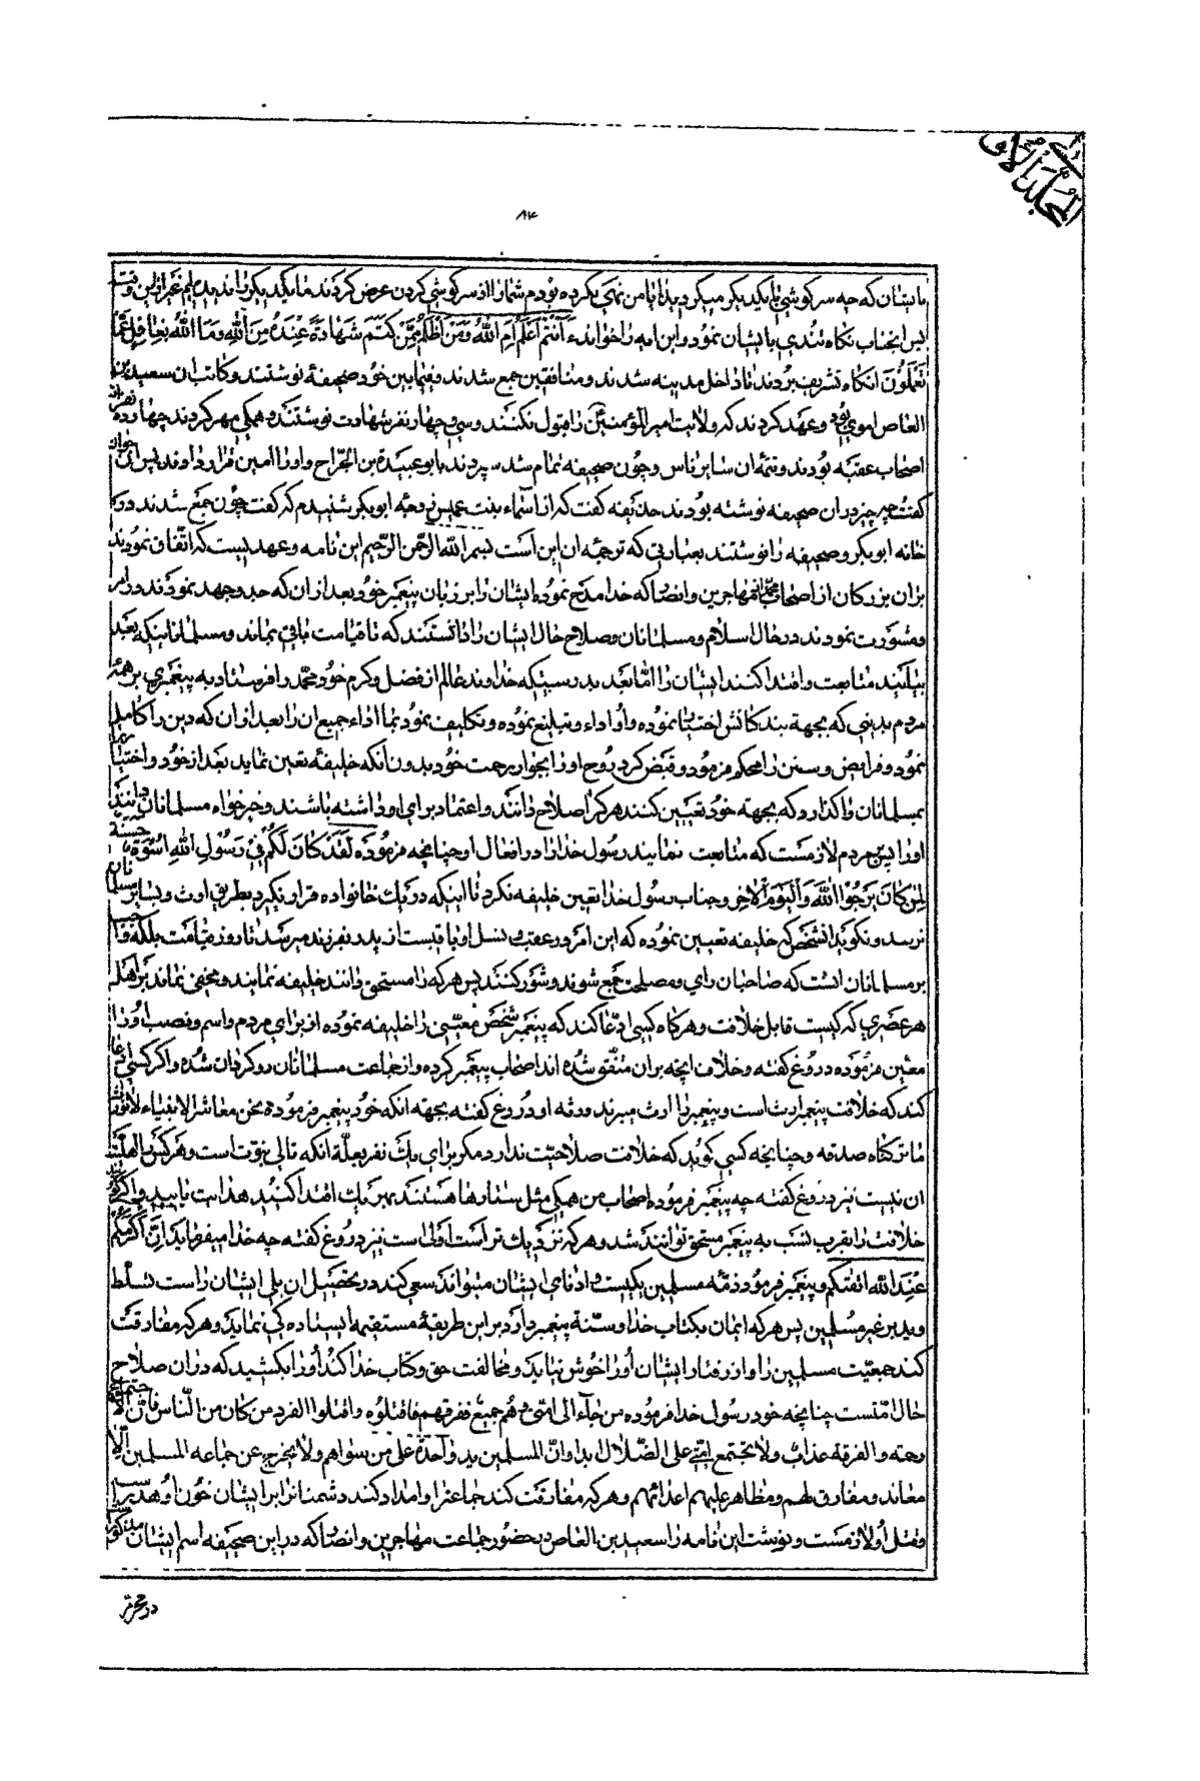 المجلد الاول
۸۴
بایشان که چه سرکوشی با یکدیکر میکردید با من نمی کرده بودم شما را از سرکوشی کردن عرض کردند ما یکدیکر را ندیدیم غیر از این وقت
پس انجناب نکاه تندی بایشان نمود و این ایه را خواندند ءَاَنْتُمْ اَعْلَمُ اَمِ اللهُ وَمَنْ اَظْلَمُ مِمَّنْ كَتَمَ شَهادَةً عِنْدَهُ مِنَ اللهِ وَمَا اللهُ بِغافِلٍ عَمّا
تَعْمَلُونَ انکاه تشریف بردند تا داخل مدینه شدند و منافقین جمع شدند و فیمابین خود صحیفهٔ نوشتند و کاتب ان سعید بن
العاص اموی بود و عهد کردند که ولایت امیر المؤمنین را قبول نکنند و سی و چهار نفر شهادت نوشتند و همکی مهر کردند چهارده نفر از
اصحاب عقبه بودند و تتمه ان سایر ناس و چون صحیفه تمام شد سپردند بابو عبیدة بن الجراح و او را امین قرار دادند پس ان جوان
کفت چه چیز در ان صحیفه نوشته بودند حذیفه کفت که از اسماء بنت عمیس زوجه ابوبکر شنیدم که کفت چون جمع شدند در
خانه ابوبکر و صحیفه را نوشتند بعبارتی که ترجمه ان این است بسم الله الرحمن الرحیم این نامه و عهدیست که اتفاق نمودند
بران بزرکان از اصحاب محمد از مهاجرین و انصار که خدا مدح نموده ایشان را بر زبان پیغمبر خود بعد از ان که جد و جهد نمودند در امر
و مشورت نمودند در حال اسلام و مسلمانان و صلاح حال ایشان را دانستند که تا قیامت باقی بماند و مسلمانانیکه بعد
بیایند متابعت و اقتدا کنند ایشان را امّا بعد بدرستیکه خداوند عالم از فضل و کرم خود محمد را فرستاد به پیغمبری بر همه
مردم بدینی که بجهة بندکانش اختیار نموده و او اداء و تبلیغ نموده و تکالیف نمود تمّا اداء جمیع ان را بعد از ان که دین را کامل
نمود و فرایض و سنن را محکم فرمود و قبض کرد روح او را بجوار رحمت خود بدون آنکه خلیفهٔ تعین نماید بعد از خود و اختیار را
بمسلمانان واکذارد که بجهته خود تعیین کنند هر که را صلاح دانند و اعتماد برای او داشته باشند و خیرخواه مسلمانان دانند
او را پس بر مردم لازمست که متابعت نمایند رسول خدا را در افعال او چنانچه فرموده لَقَدْ كانَ لَكُمْ فى رَسُولِ اللهِ اُسْوَةٌ حَسَنَةٌ
لِمَنْ كانَ يَرْجُوْا اللهَ وَالْيَوْمَ الْآخِرَ و جناب رسول خدا تعین خلیفه نکرد تا اینکه در یک خانواده قرار نکیرد بطریق ارث و بسایر مسلمانان
نرسد و نکوید انشخص که خلیفه تعیین نموده که این امر در عقب و نسل او باقیست از پدر بفرزند میرسد تا روز قیامت بلکه
بر مسلمانان انست که صاحبان رای و مصلحت جمع شوند و شور کنند پس هر که را مستحق دانند خلیفه نمایند و مخفی نماند بر اهل
هر عصری که کیست قابل خلافت و هرکاه کسی ادّعا کند که پیغمبر شخص معیّنی را خلیفه نموده از برای مردم و اسم و نصب او را
معیّن فرموده دروغ کفته و خلاف انچه بران متفق شده اند اصحاب پیغمبر کرده و از جماعت مسلمانان روکردان شده و اکر کسی ادعا
کند که خلافت پیغمبر ارث است و پیغمبر را ارث میبرند ورثه او دروغ کفته بجهته انکه خود پیغمبر فرموده نحن معاشر الانبیاء لانورث
ما ترکناه صدقه و چنانچه کسی کوید که خلافت صلاحیّت ندارد مکر برای یک نفر بعلّة انکه تالی نبوّت است و هر کس را اهلیت
ان نیست نیز دروغ کفته چه پیغمبر فرموده اصحاب من همکی مثل ستارها هستند بهر یک اقتدا کنید هدایت یابید و اکر کوید
خلافت را بقرب نسب به پیغمبر مستحق توانند شد و هر که نزدیک تر است اولی است نیز دروغ کفته چه خدا میفرماید اِنَّ اَكْرَمَكُمْ
عِنْدَ الله اتقيكم و پیغمبر فرمود ذمّه مسلمین یکیست و ادنای ایشان میتواند سعی کند در تحصیل ان بلی ایشان راست تسلّط
و ید بر غیر مسلمین پس هر که ایمان بکتاب خدا و سنّة پیغمبر دارد بر این طریقهٔ مستقیمه ایستاده کی نماید و هر که مفارقت
کند جمعیّت مسلمین را و از رفتار ایشان او را خوش نیاید و مخالفت حق و کتاب خدا کند او را بکشید که در ان صلاح
حال امّتست چنانچه خود رسول خدا فرموده من جاء الی امّتی و هم جمیع ففرقهم فاقتلوه و اقتلوا الفرد من کان من النّاس فانّ الاجتماع
رحمته و الفرقة عذاب ولا تجتمع امّتی علی الضّلال ابدا و انّ المسلمین ید واحدة علی من سواهم ولا یخرج عن جماعه المسلمین الّا
معاند و مفارق لهم و مظاهر علیهم اعدائهم و هر که مفارقت کند جماعت را و امداد کند دشمنانرا بر ایشان خون او هدر است
و قتل او لازمست و نوشت این نامه را سعید بن العاص در حضور جماعت مهاجرین و انصار که در این صحیفه اسم ایشان مذکور است
در محرّم